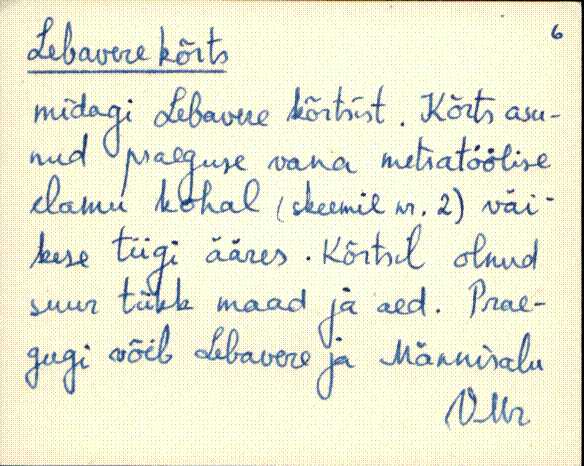 6
Lebavere kõrts
midagi Lebavere kõrtsist. Kõrts asu-
nud praeguse vana metsatöölise
elamu kohal (skeemil nr. 2) väi-
kese tiigi ääres. Kõrtsil olnud
suur tükk maad ja aed. Prae-
gugi võib Lebavere ja Männisalu